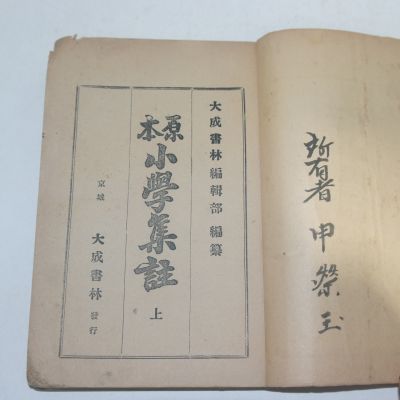 所有者 申榮玉
大成書林編輯部 編纂
原本
小學集註
上
京城 大成書林 發行